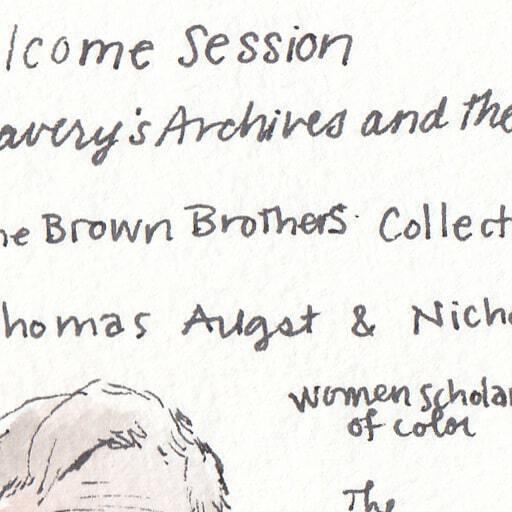 lcome Session
avery's Archives and the
he Brown Brothers Collect
homas Augst & Nicho
women scholar
of color
The